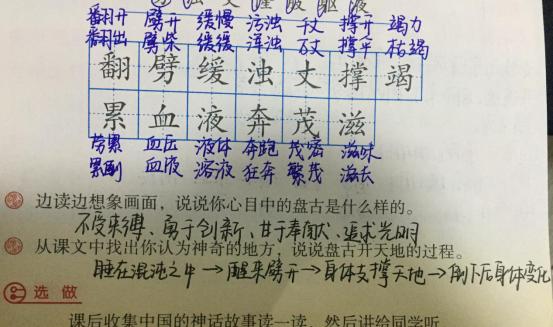 翻开 劈开 缓慢 污浊 千丈 撑开 竭力
翻出 劈柴 缓缓 浑浊 万丈 撑伞 枯竭
翻 劈 缓 浊 丈 撑 竭
累 血 液 奔 茂 滋
劳累 血压 液体 奔跑 茂密 滋味
累赘 血液 溶液 狂奔 繁茂 滋长
边读边想象画面，说说你心目中的盘古是什么样的。
不受束缚、勇于创新、甘于奉献、追求光明
从课文中找出你认为神奇的地方，说说盘古开天地的过程。
睡在混沌之中→醒来劈开→身体支撑天地→倒下后身体变化
选做
课后收集中国的神话故事读一读，然后讲给同学听